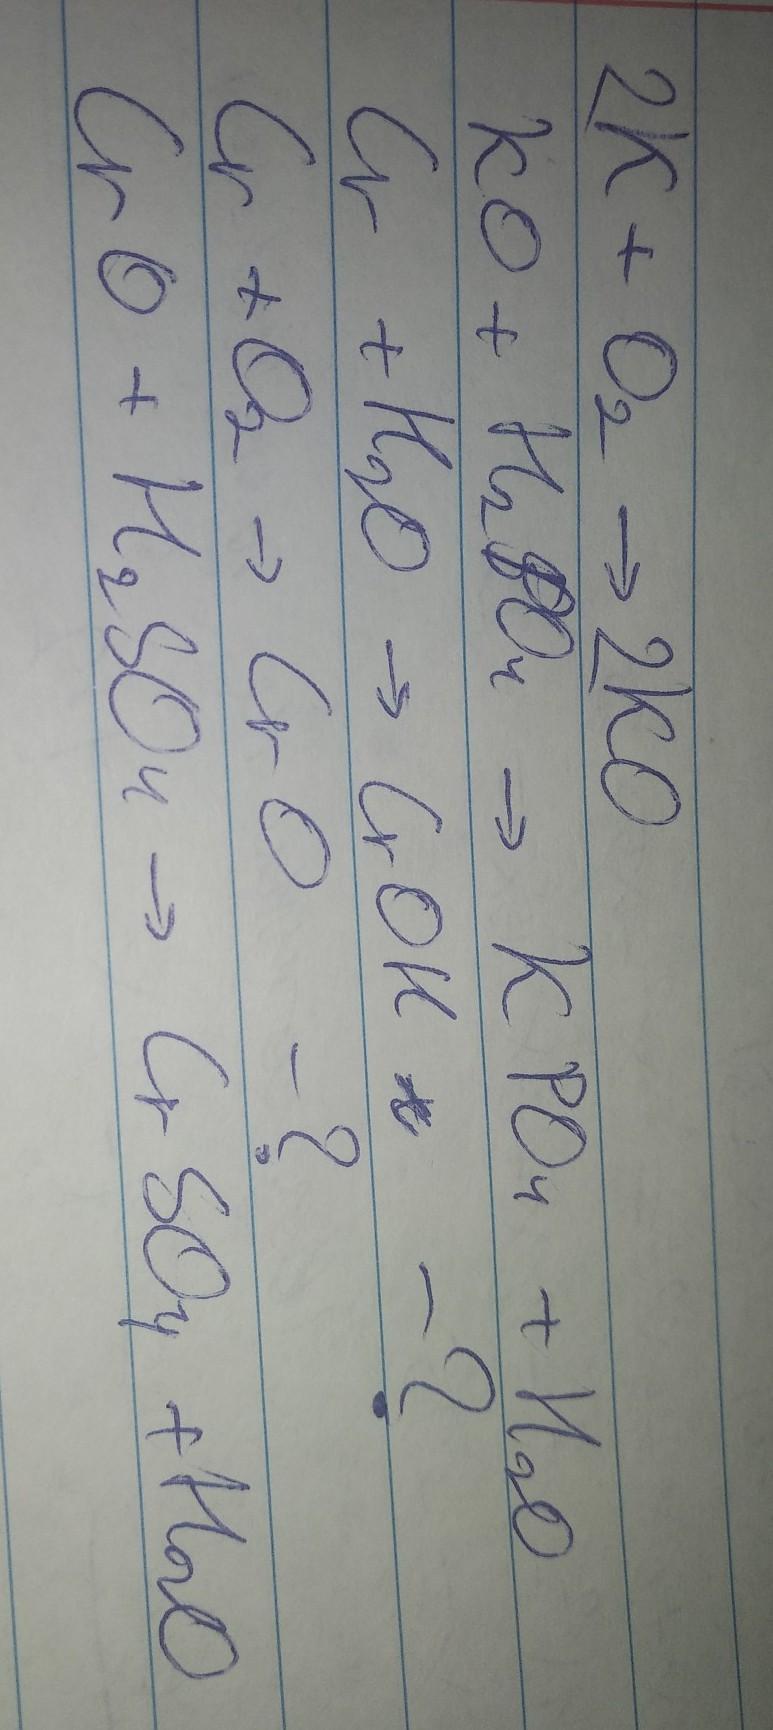 2K + O2 → 2KO
KO + H2PO4 → KPO4 + H2O
Cr + H2O → CrOH - ?
Cr + O2 → CrO - ?
CrO + H2SO4 → CrSO4 + H2O